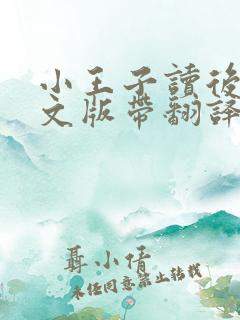 小王子讀後
文版帶翻譯
聶小倩
未经同意禁止转载